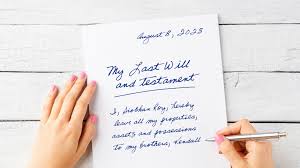 August 8, 2023
My Last Will
and Testament
I, Siobhan Roy, hereby
leave all my properties,
assets and possessions
to my brothers, Kendall